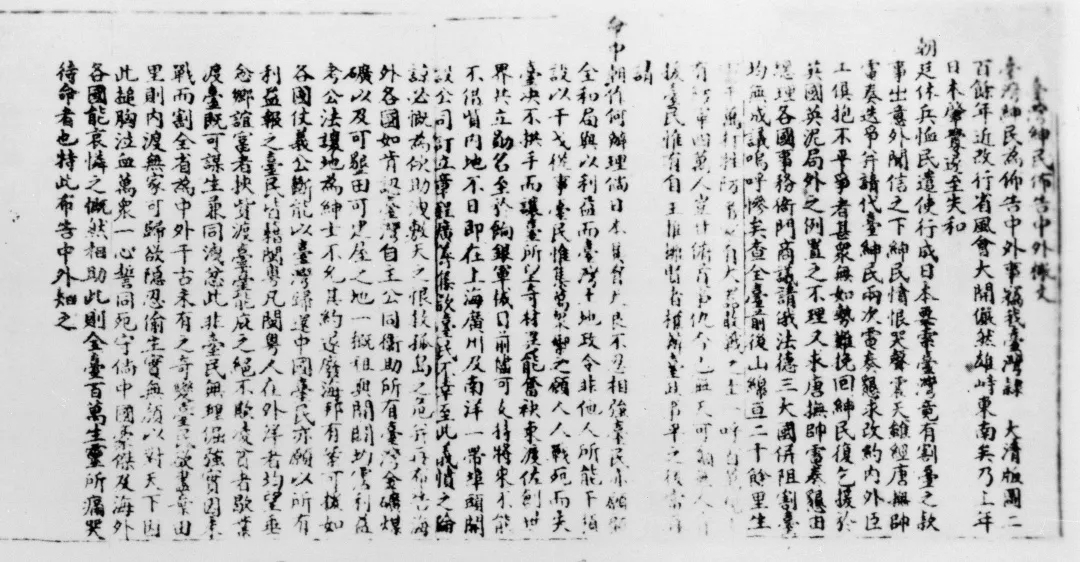 臺灣紳民佈告中外檄文
臺灣紳民為佈告中外事竊我臺灣隸 大清版圖二
百餘年近改行省風會大開儼然雄峙東南矣乃上年
日本肇釁遂至失和
朝廷休兵恤民遣使行成日本要索臺灣竟有割臺之款
事出意外聞信之下紳民憤恨哭聲震天雖經唐撫帥
電奏迭爭并請代臺紳民兩次電奏懇求改約內外臣
工俱抱不平爭者甚眾無如勢難挽回紳民復乞援於
英國英泥局外之例置之不理又求唐撫帥電奏懇由
總理各國事務衙門商議請俄法德三大國併阻割臺
均無成議嗚呼慘矣查全臺前後山綿亘二十餘里生
千萬打牲防番家有火器敢戰之士一呼百萬
有防軍四萬人豈甘俯首事仇今已無天可籲無人肯
援臺民惟有自主推擁賢者權攝臺政事平之後當再
請
命中朝作何辦理倘日本具有天良不忍相強臺民亦願顧
全和局與以利益而臺灣土地政令非他人所能干預
設以干戈從事臺民惟集萬眾禦之願人人戰死而失
臺決不拱手而讓臺所望奇材異能奮袂東渡佐創世
界共立勛名至於餉銀軍械目前儘可支持將來不能
不借貸內地不日即在上海廣州及南洋一帶埠頭開
設公司訂立章程廣籌集款臺民不幸至此義憤之倫
諒必慨為佽助洩敷天之恨救孤島之危并再布告海
外各國如肯認臺灣自主公同衛助所有臺灣金礦煤
礦以及可墾田可建屋之地一概租與開闢均霑利益
考公法讓地為紳士不允其約遂廢海邦有案可援如
各國仗義公斷能以臺灣歸還中國臺民亦願以所有
利益報之臺民皆籍閩粵凡閩粵人在外洋者均望垂
念鄉誼富者挾貲渡臺臺能庇之絕不欺凌貧者歇業
渡臺既可謀生兼同洩忿此非臺民無理倔強實因未
戰而割全省為中外千古未有之奇變臺民欲盡棄田
里則內渡無家可歸欲隱忍偷生實無顏以對天下因
此搥胸泣血萬眾一心誓同死守倘中國豪傑及海外
各國能哀憐之慨然相助此則全臺百萬生靈所痛哭
待命者也特此布告中外知之